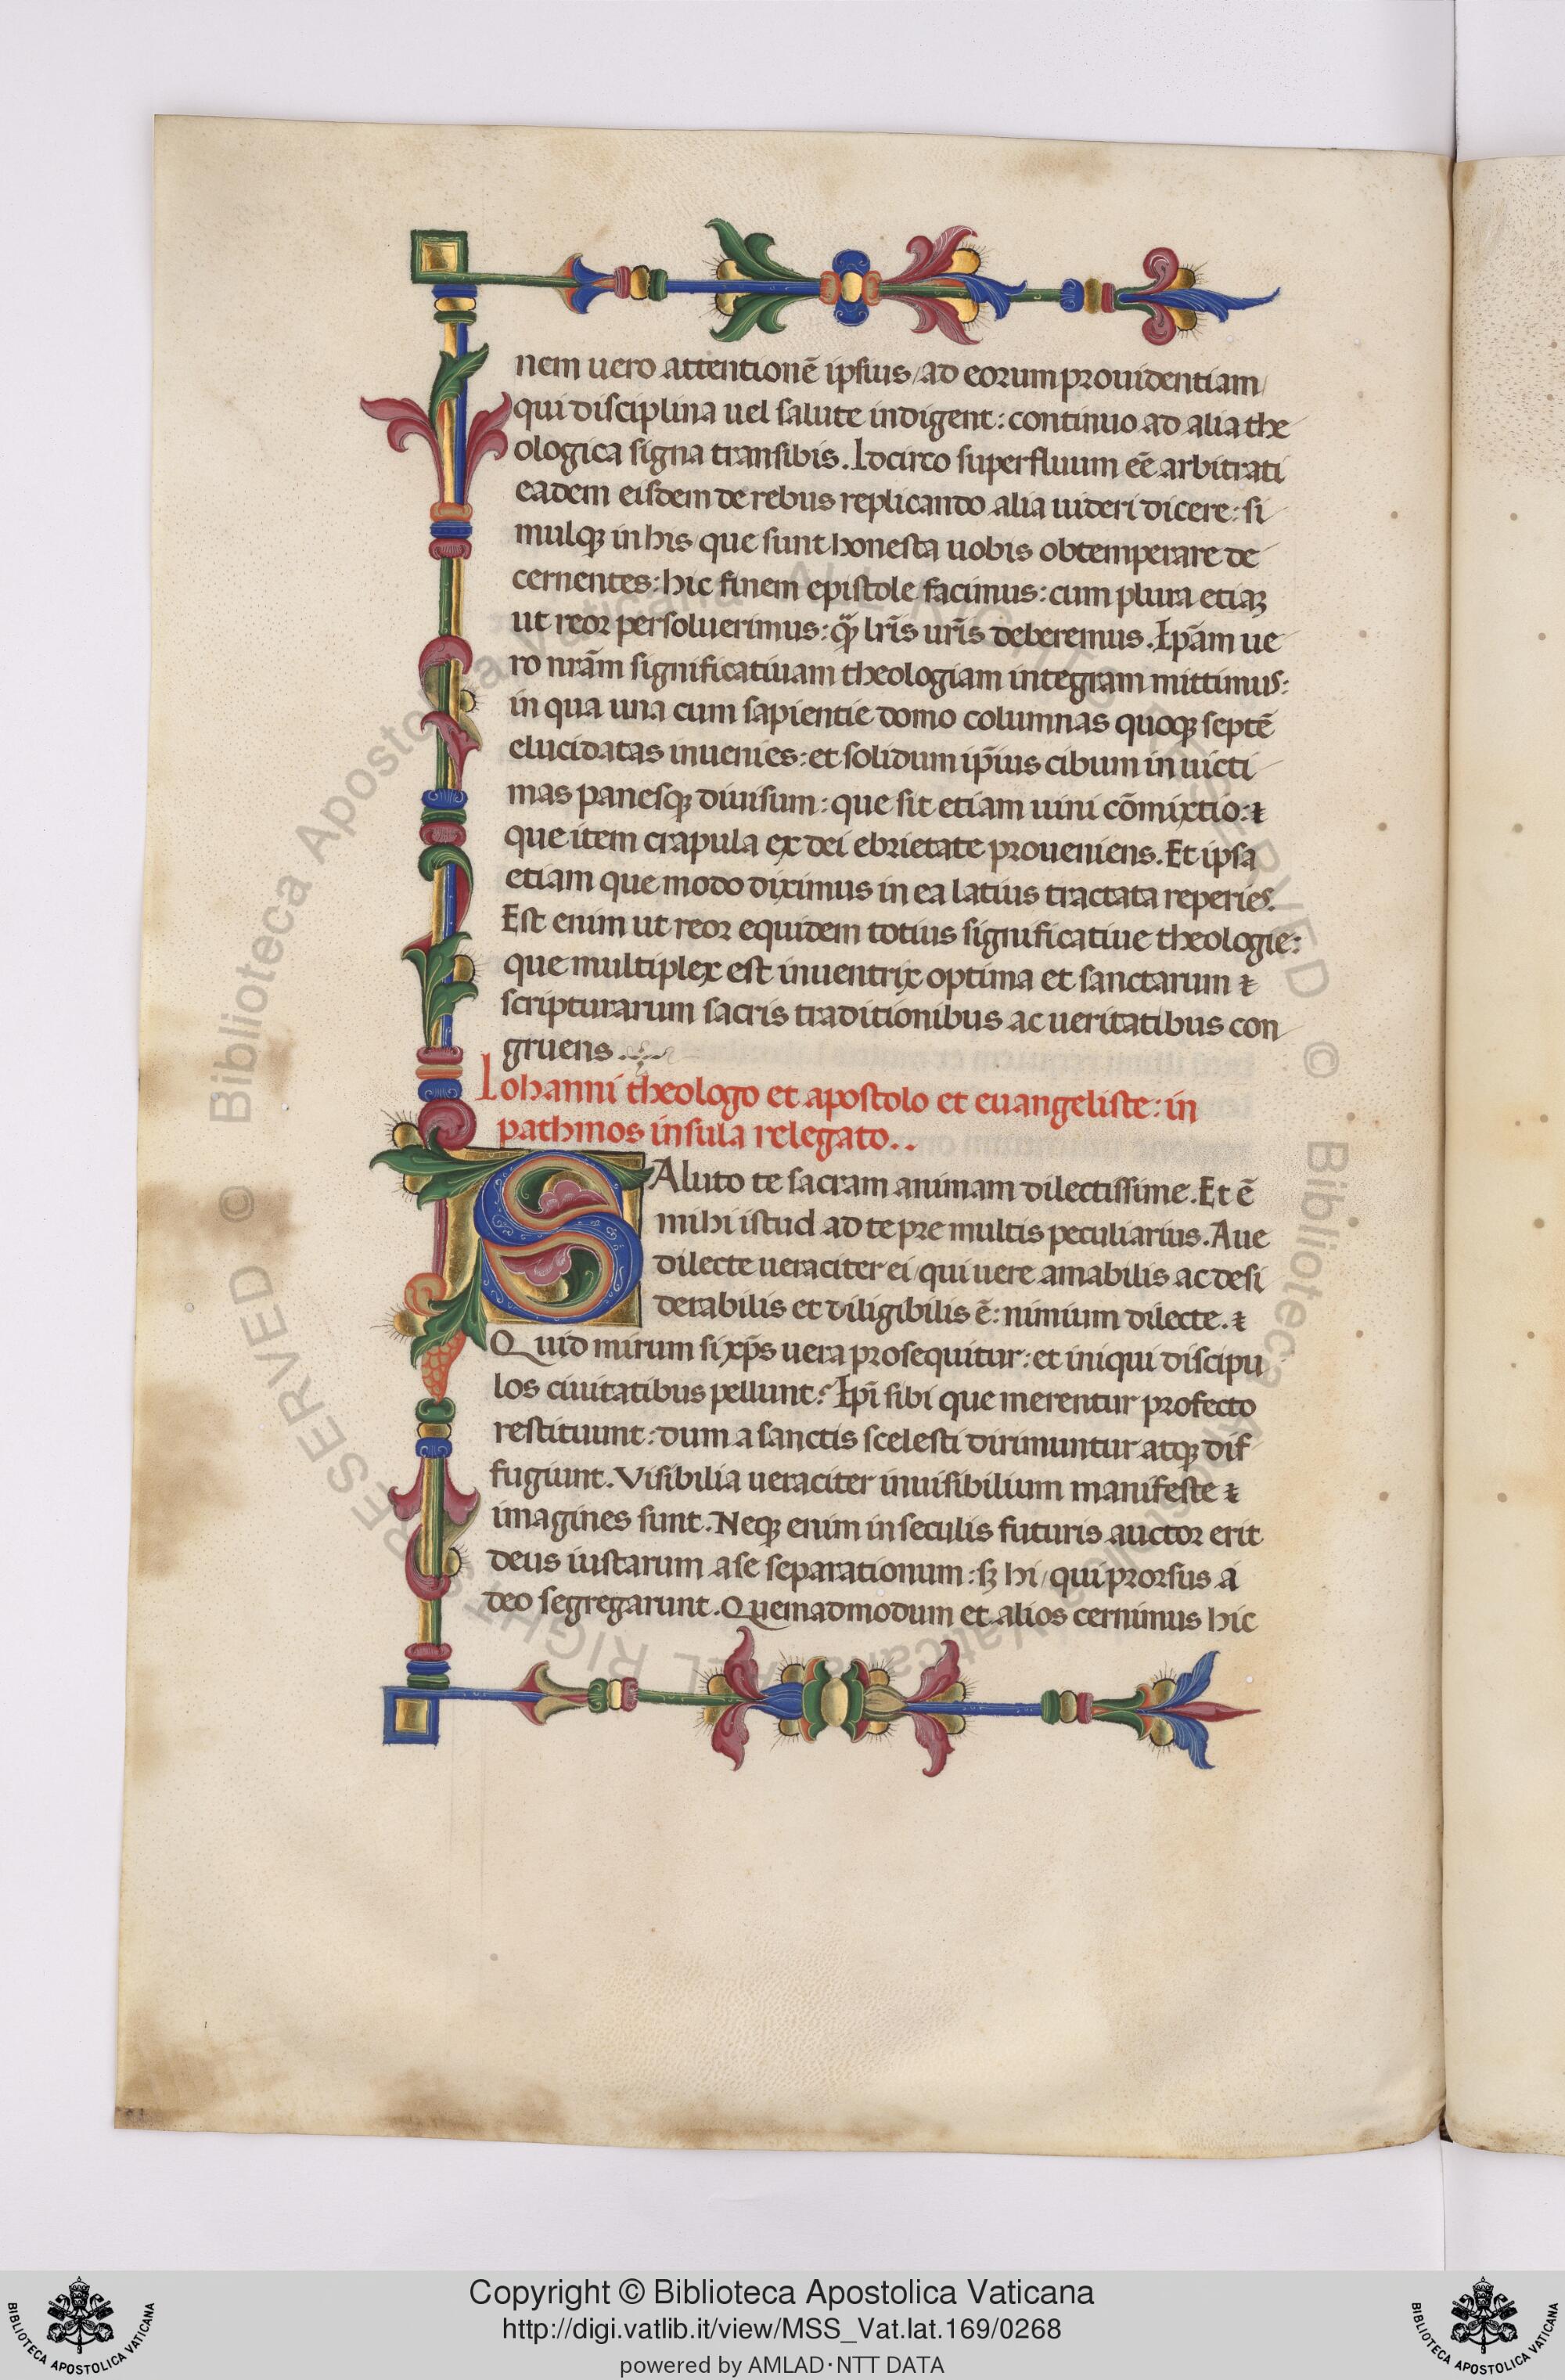 nem uero attentionē ipsius/ad eorum prouidentiam/
qui disciplina uel salute indigent: continuo ad alia the
ologica signa transibis. Idcirco superfluum eē arbitrati
eadem eisdem de rebus replicando alia uideri dicere: si
mulqȝ in his/que sunt honesta uobis obtemperare de
cernentes: hic finem epistole facimus: cum plura etiaȝ
ut reor persoluerimus: qȝ lr̄is ur̄is deberemus. Ip̄am ue
ro nr̄am significatiuam theologiam integram mittimus:
in qua una cum sapientie domo columnas quoqȝ septē
elucidatas inuenies: et solidum ip̄ius cibum in uicti
mas panesqȝ diuisum: que sit etiam uini cōmixtio: ⁊
que item crapula ex dei ebrietate proueniens. Et ipsa
etiam que modo diximus in ea latius tractata reperies.
Est enim ut reor equidem totius significatiue theologie:
que multiplex est inuentrix optima et sanctarum ⁊
scripturarum sacris traditionibus ac ueritatibus con
gruens.
Iohanni theologo et apostolo et euangeliste: in
pathmos insula relegato..
SAluto te sacram animam dilectissime. Et ē
mihi istud ad te pre multis peculiarius. Aue
dilecte ueraciter ei/qui uere amabilis ac desi
derabilis et diligibilis ē: nimium dilecte. ⁊
Quid mirum si xp̄s uera prosequitur: et iniqui discipu
los ciuitatibus pellunt? Ip̄i sibi que merentur profecto
restituunt: dum a sanctis scelesti dirimuntur atqȝ dif
fugiunt. Visibilia ueraciter inuisibilium manifeste ⁊
imagines sunt. Neqȝ enim in seculis futuris auctor erit
deus iustarum a se separationum: sȝ hi/qui prorsus a
deo segregarunt. Quemadmodum et alios cernimus hic
© Biblioteca Apostolica Vaticana ALL RIGHTS RESERVED
© Biblioteca Apostolica Vaticana ALL RIGHTS RESERVED
BIBLIOTECA APOSTOLICA VATICANA
Copyright © Biblioteca Apostolica Vaticana
http://digi.vatlib.it/view/MSS_Vat.lat.169/0268
powered by AMLAD·NTT DATA
BIBLIOTECA APOSTOLICA VATICANA